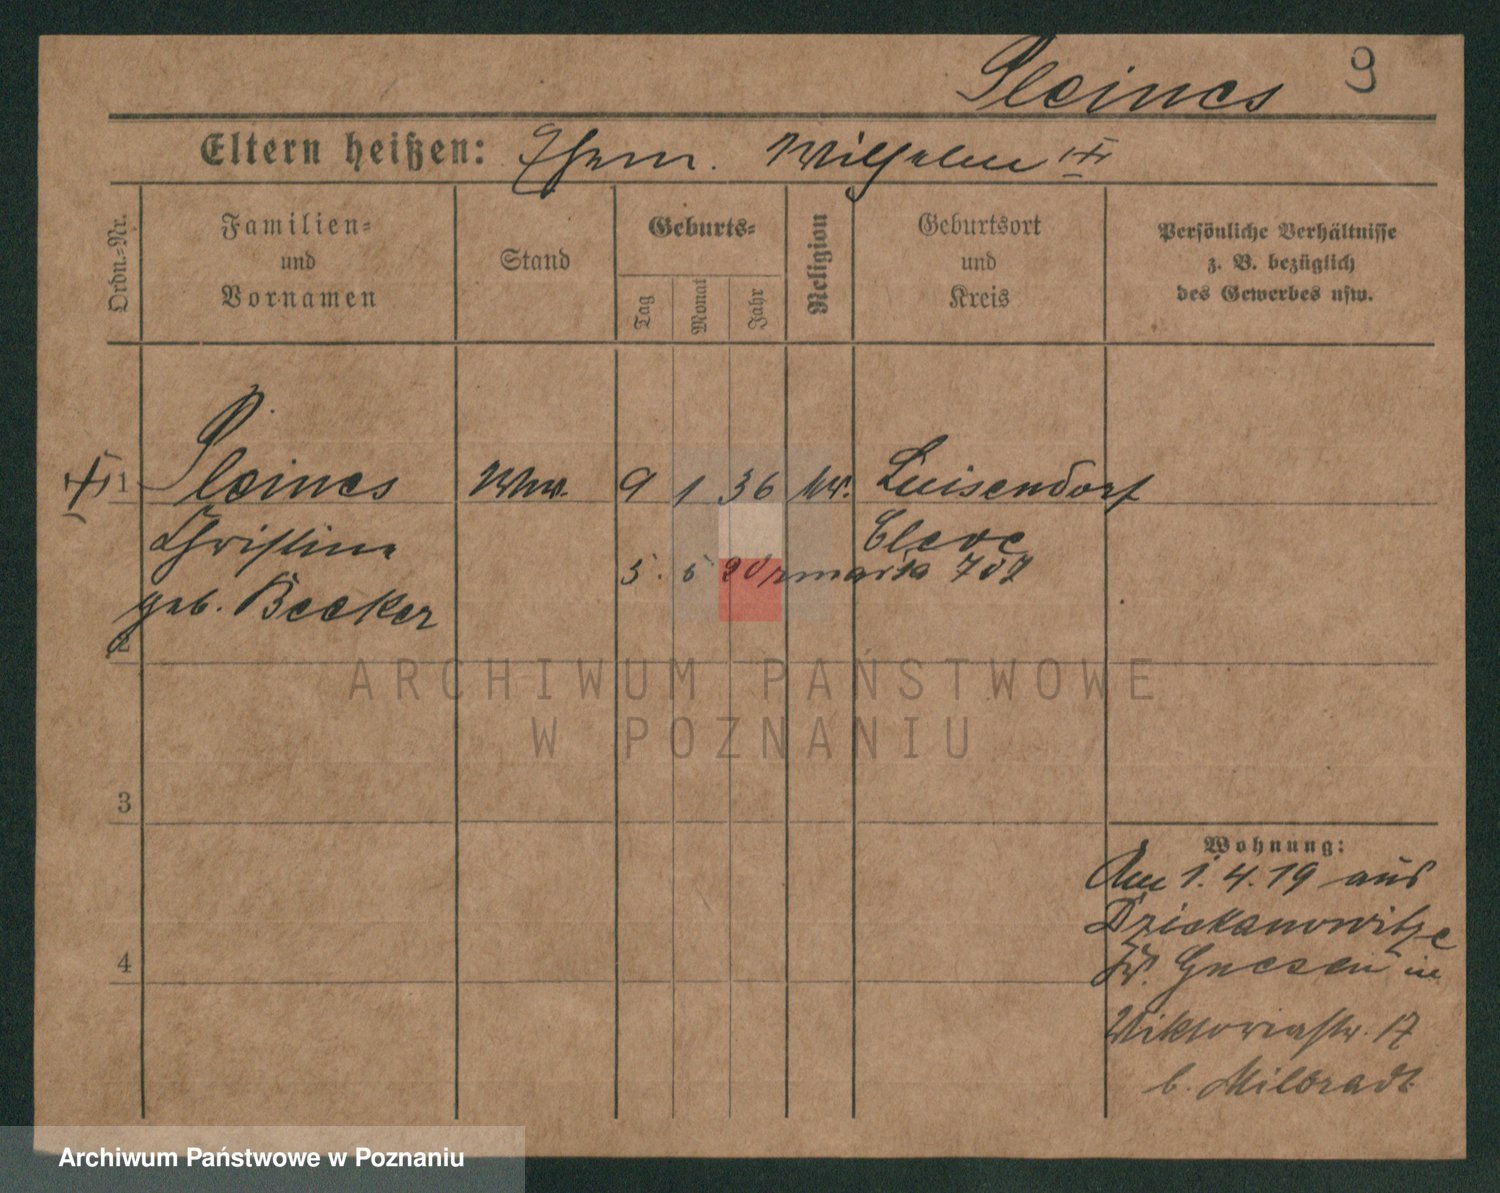 Pleines 9
Eltern heißen: Ehem. Wilhelm
Ordn.-Nr.
Familien-
und
Vornamen
Stand
Geburts-
Tag
Monat
Jahr
Religion
Geburtsort
und
Kreis
Persönliche Verhältnisse
z. B. bezüglich
des Gewerbes usw.
1 Pleines Wwe. 9 1 36 Luisendorf
Christine Cleve
5. 5 20 707
geb. Becker
2
3
4
ARCHIWUM PAŃSTWOWE
W POZNANIU
Wohnung:
Am 1.4.19 aus
Dziekanowitze
Kr. Gnesen in
Viktoriastr. 17
b. Milbradt
Archiwum Państwowe w Poznaniu